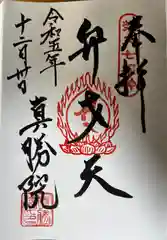 奉拝
弁天
真勝院
令和五年
十二月廿日